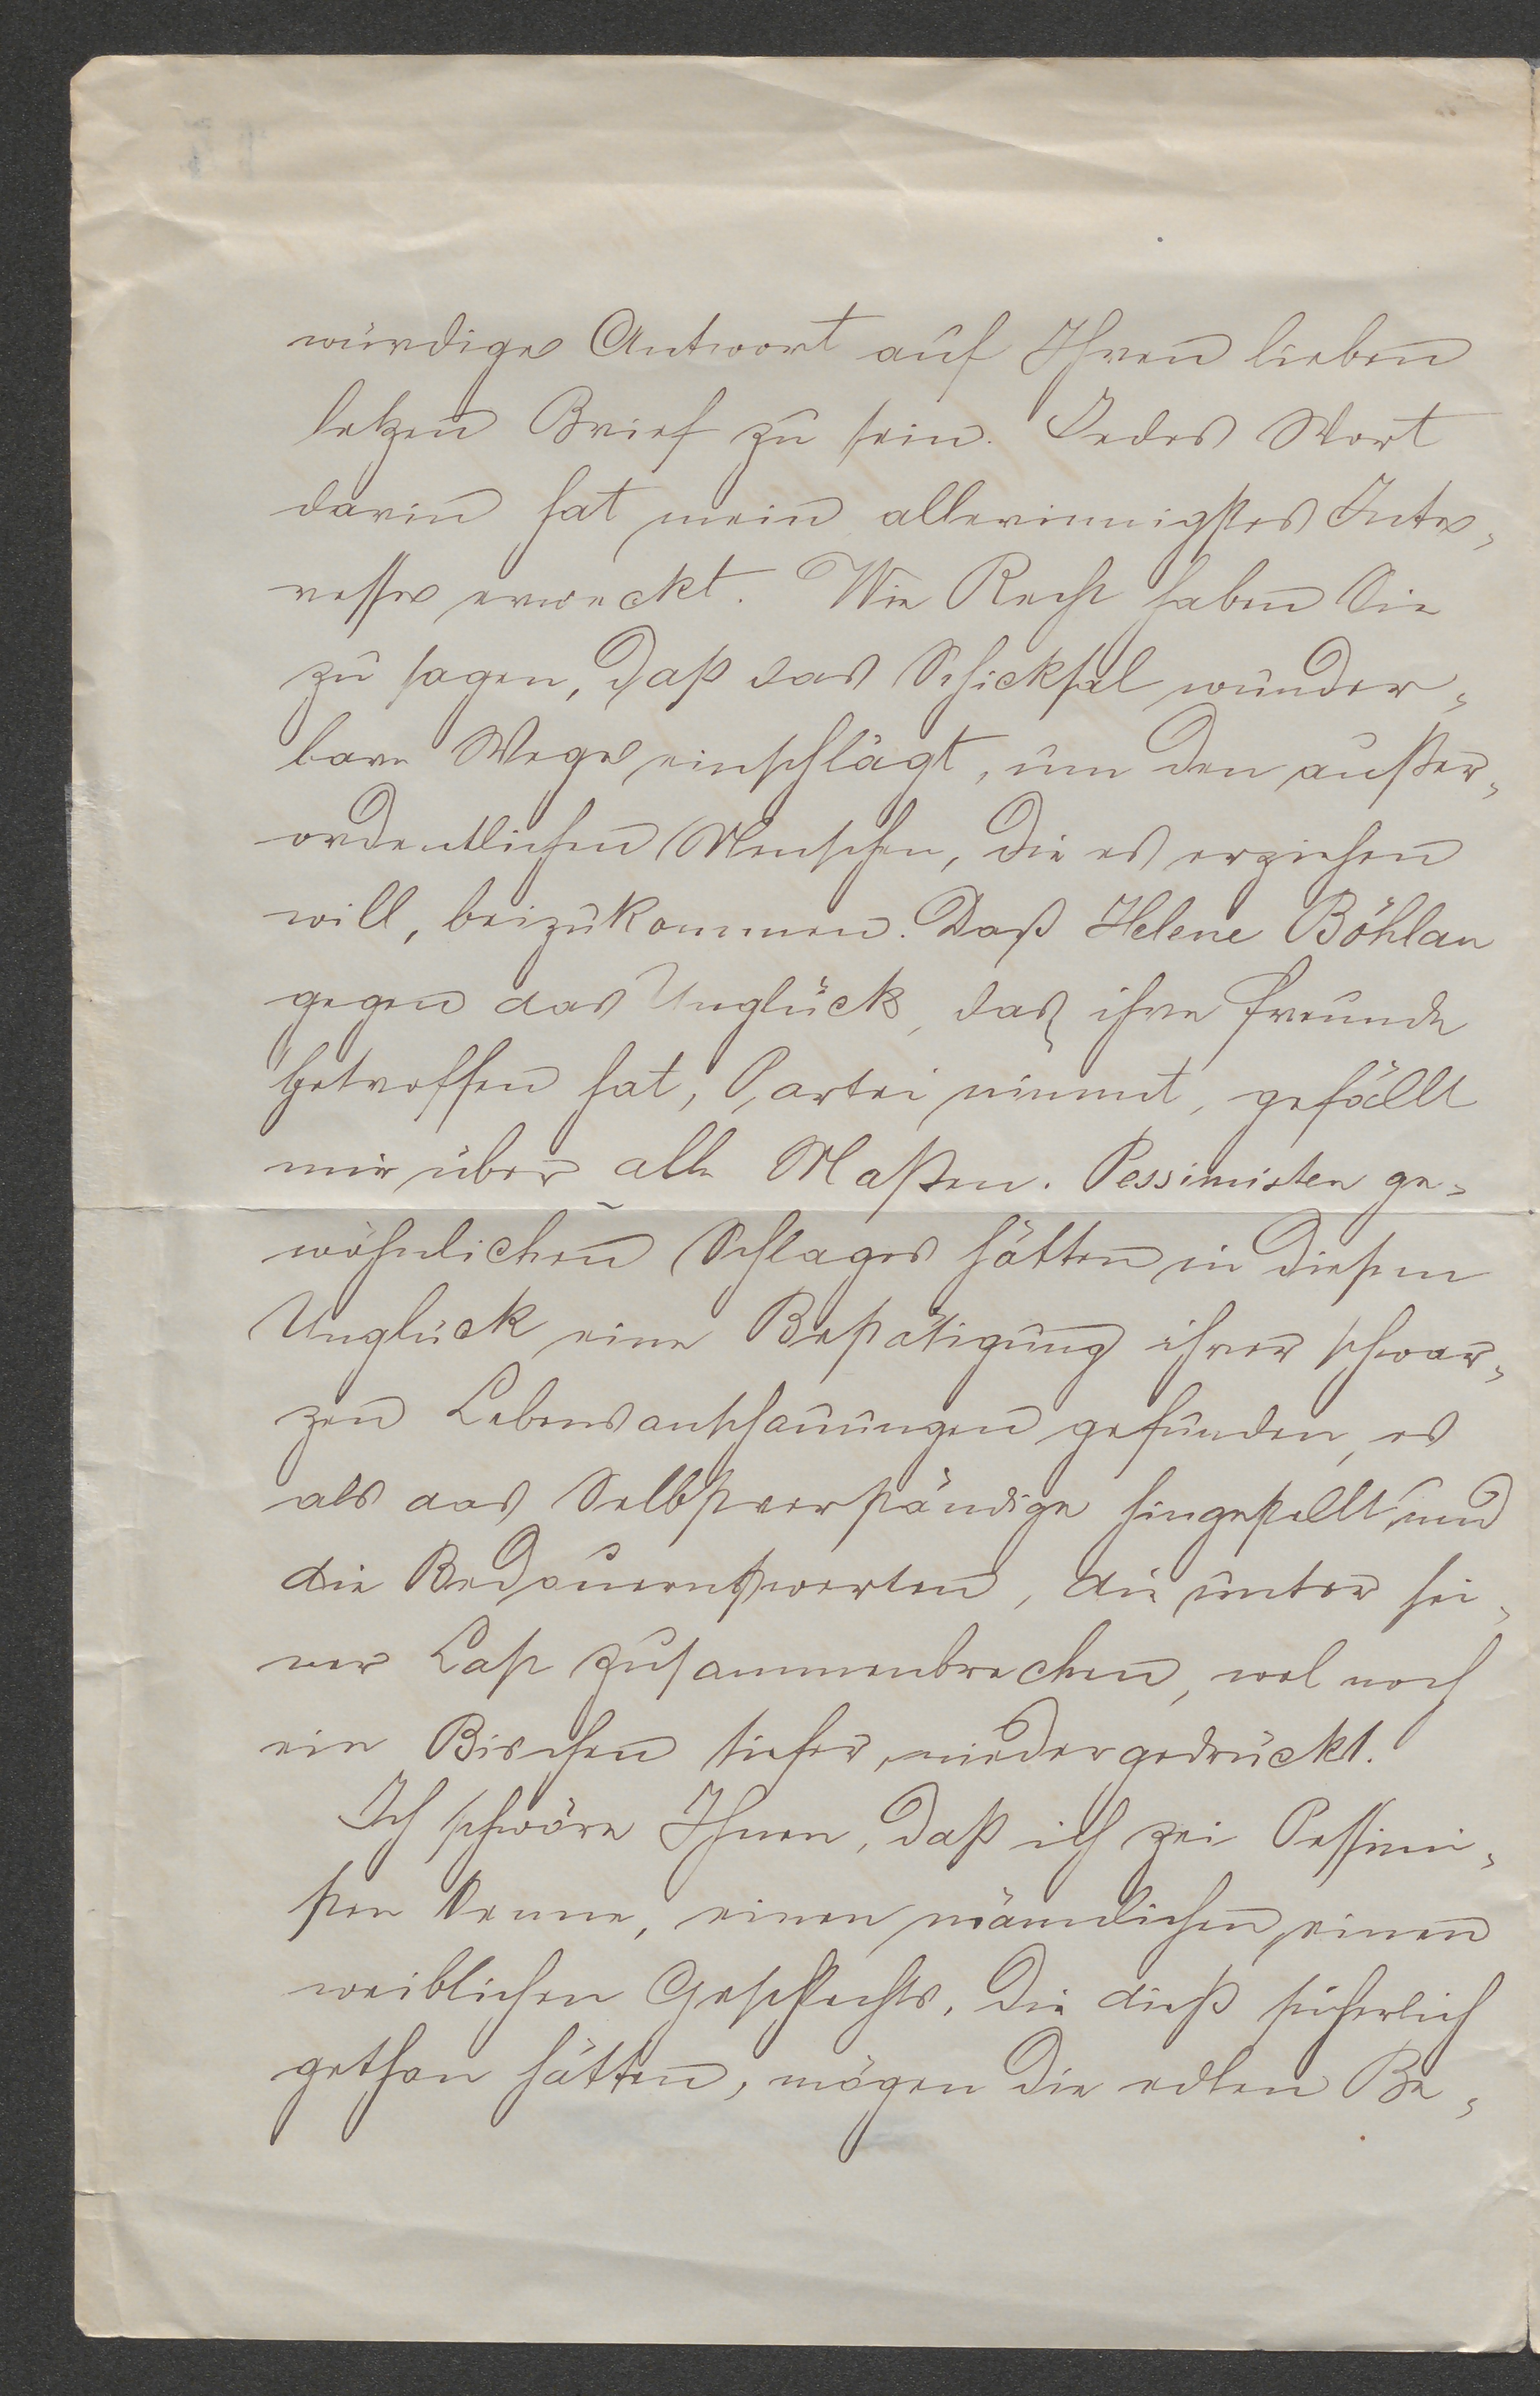 würdige Antwort auf Ihren lieben
letzen Brief zu sein. Jedes Wort
darin hat mein allerinnigstes Inte-
resse erweckt. Wie Recht haben Sie
zu sagen, daß das Schicksal wunder-
bare Wege einschlägt, um den außer-
ordentlichen Menschen, die es erziehen
will, beizukommen. Daß Helene Böhlau
gegen das Unglück, das ihre Freunde
betroffen hat, Partei nimmt, gefällt
mir über alle Maßen. Pessimisten ge-
wöhnlichen Schlages hätten in diesem
Unglück eine Bestätigung ihrer schwar-
zen Lebensanschauungen gefunden, es
als das Selbstverständige hingestellt, und
die Bedauernswerten, die unter sei-
ner Last zusammenbrechen, wol noch
ein Bischen tiefer niedergedrückt.
Ich schwöre Ihnen, daß ich zwei Pessimi-
sten kenne, einen männlichen, einen
weiblichen Geschlechts, die dieß sicherlich
gethan hätten, mögen die edlen Be-